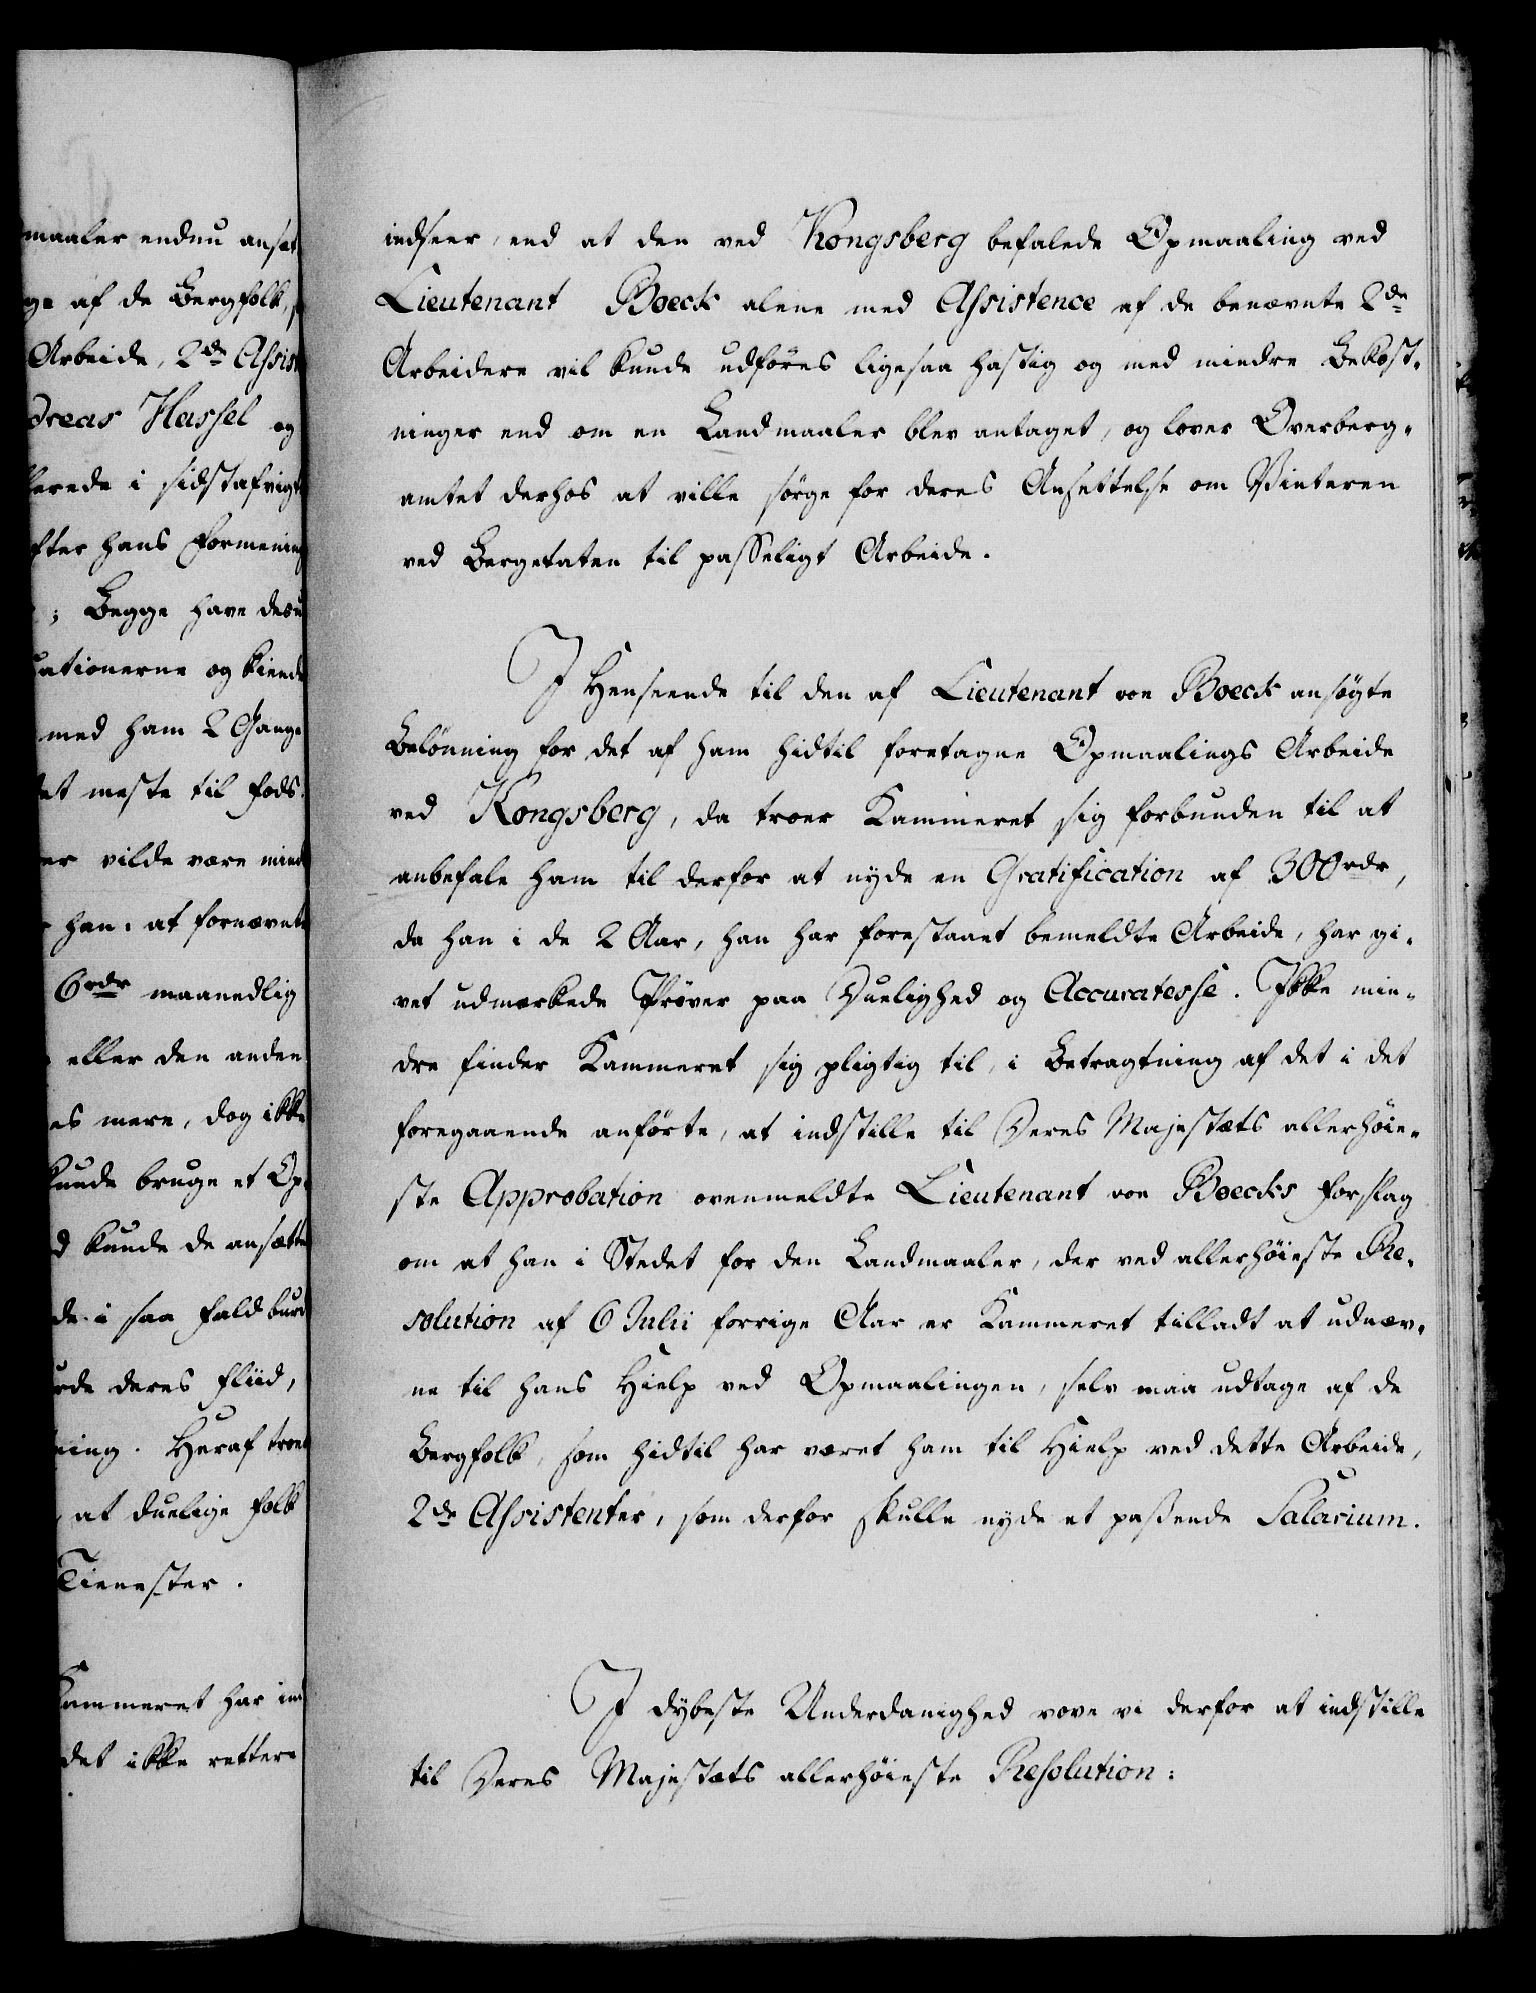 maaler endnu ansat
ge af de Bergfolk,
Arbeide, 2de Assis
dreas Hassel og
lerede i sidstafvigt
fter hans Formening
; Begge have desu
ationerne og kiende
med ham 2 Gange
et meste til Fods.
er vilde være mind
han: at fornævnte
6 rdr maanedlig
eller den anden
es mere, dog ikke
kunde bruge et Op
d kunde de ansætte
de i saa Fald burd
rde deres Fliid,
ning. Heraf troer
at duelige Folk
Tienester.
Kammeret har ind
det ikke rettere
indseer, end at den ved Kongsberg befalede Opmaaling ved
Lieutenant Boeck alene med Assistence af de benævnte 2de
Arbeidere vil kunde udföres ligesaa hastig og med mindre Bekost-
ninger end om en Landmaaler blev antaget, og lover Overberg-
amtet derhos at ville sörge for deres Ansettelse om Vinteren
ved Bergetaten til passeligt Arbeide.
I Henseende til den af Lieutenant von Boeck ansögte
Belönning for det af ham hidtil foretagne Opmaalings Arbeide
ved Kongsberg, da troer Kammeret sig forbunden til at
anbefale ham til derfor at nyde en Gratification af 300 rdr,
da han i de 2 Aar, han har forestaaet bemeldte Arbeide, har gi-
vet udmærkede Pröver paa Duelighed og Accuratesse. Ikke min-
dre finder Kammeret sig pligtig til, i Betragtning af det i det
foregaaende anförte, at indstille til Deres Majestæts allerhöie-
ste Approbation ovenmeldte Lieutenant von Boecks Forslag
om at han i Stedet for den Landmaaler, der ved allerhöieste Re-
solution af 6 Julii forrige Aar er Kammeret tilladt at udnæv-
ne til hans Hielp ved Opmaalingen, selv maa udtage af de
Bergfolk, som hidtil har været ham til Hielp ved dette Arbeide,
2de Assistenter, som derfor skulle nyde et passende Salarium.
I dybeste Underdanighed vove vi derfor at indstille
til Deres Majestæts allerhöieste Resolution: